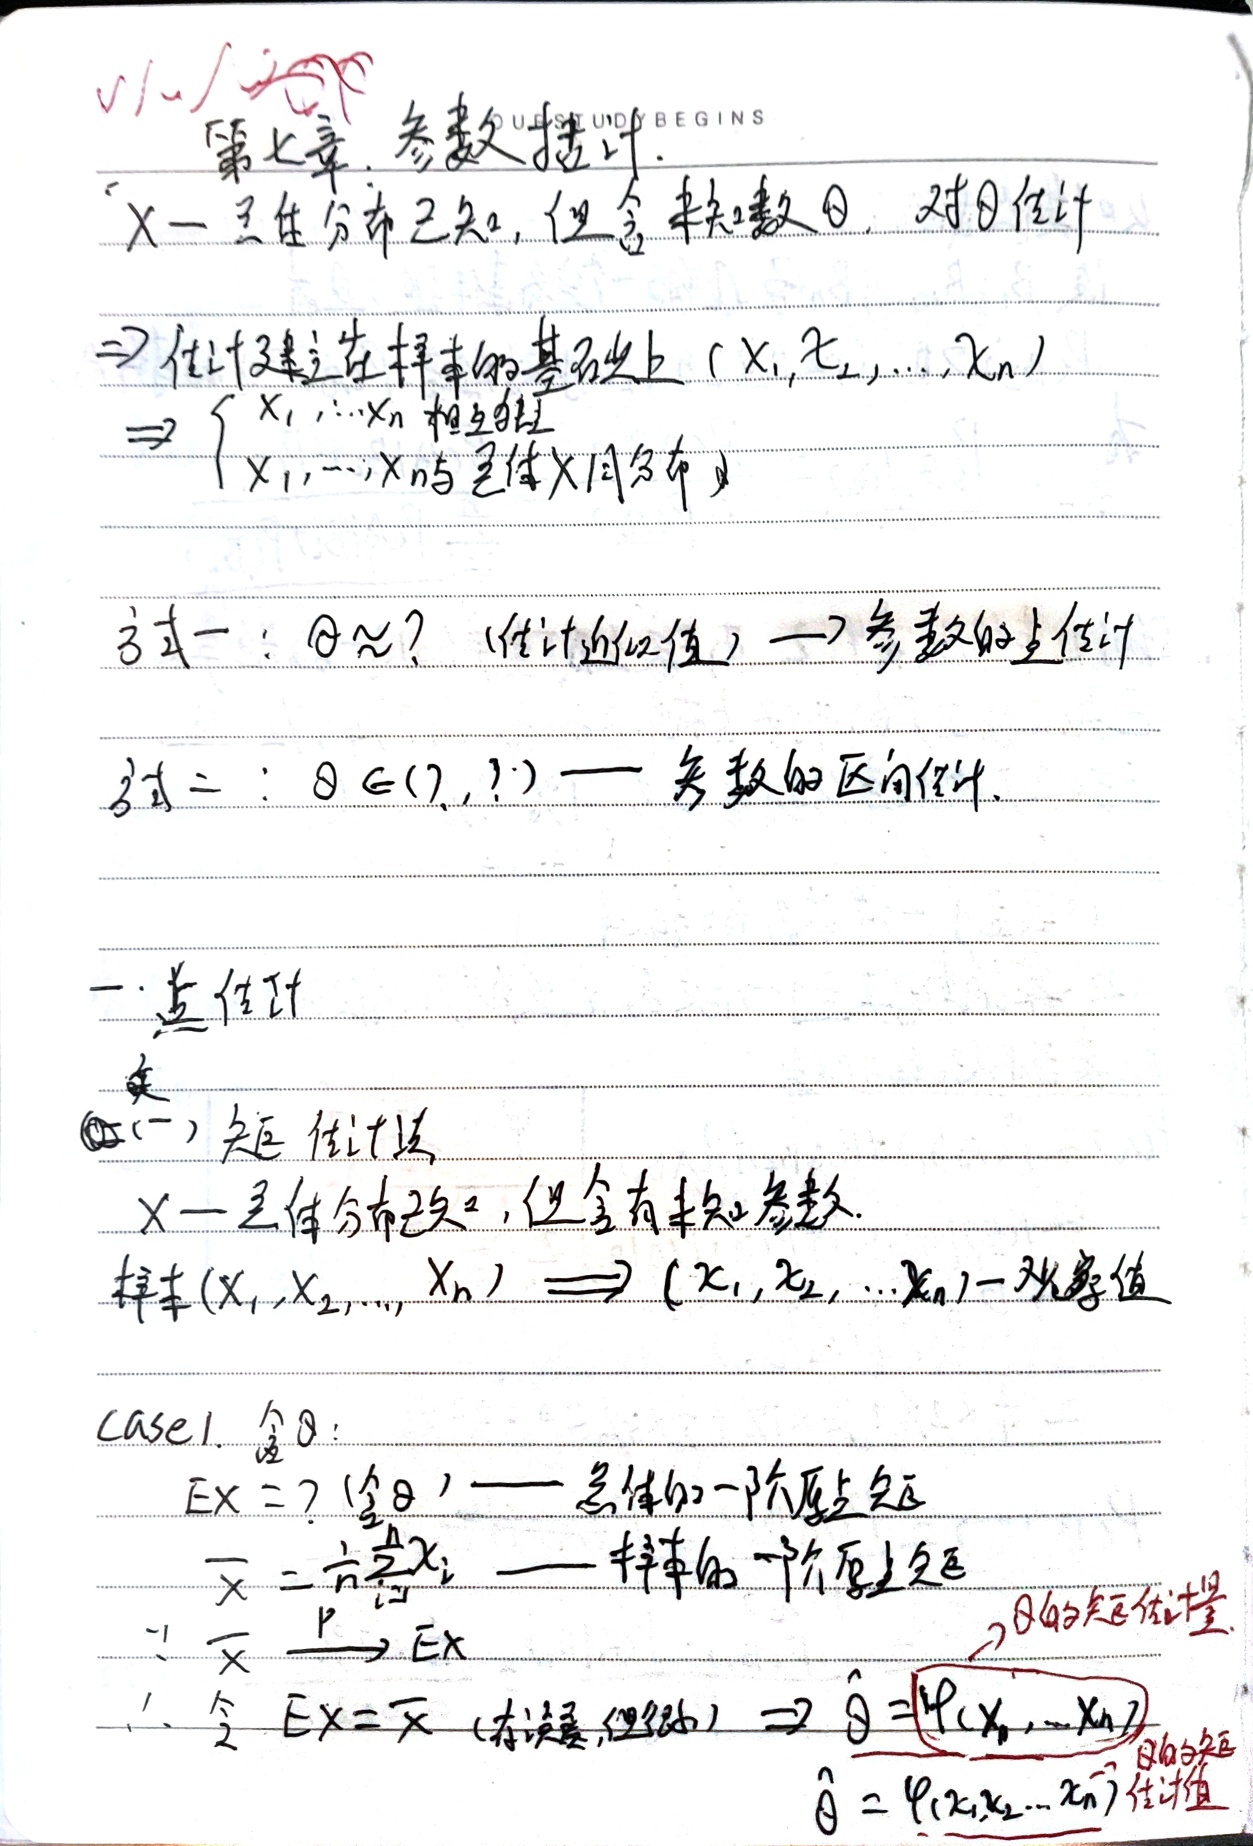 OUESTUDYBEGINS
第七章. 参数估计.
X — 总体分布已知, 但含未知数θ, 对θ估计
⇒ 估计建立在样本的基础上 (X₁, X₂, ..., Xn)
⇒ { X₁, ...Xn 相互独立
X₁, ..., Xn与总体X同分布
方式一: θ≈? (估计近似值) → 参数的点估计
方式二: θ∈(?, ?) — 参数的区间估计.
一. 点估计
(一) 矩估计法
X — 总体分布已知, 但含有未知参数.
样本(X₁, X₂, ..., Xn) ⇒ (x₁, x₂, ...xn) — 观察值
case1. 含θ:
EX = ? (含θ) — 总体的一阶原点矩
X̄ = 1/n Σ(i=1→n) Xi — 样本的一阶原点矩
∵ X̄ —P→ EX
→ θ的矩估计量.
∴ 令 EX = X̄ (有误差,但很小) ⇒ θ̂ = φ(X₁, ...Xn)
θ̂ = φ(x₁,x₂...xn) → θ的矩估计值